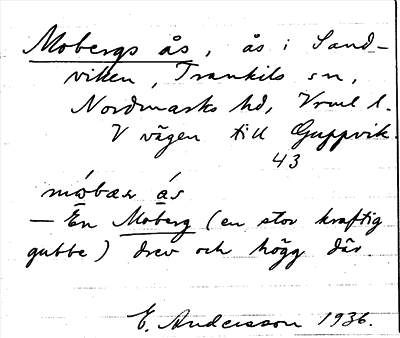 Mobergs ås, ås i Sand-
viken, Trankils sn,
Nordmarks hd, Vrml l.
V vägen till Guppvik.
43
ås
— En Moberg (en stor kraftig
gubbe) drev och högg där.
E. Andersson 1936.